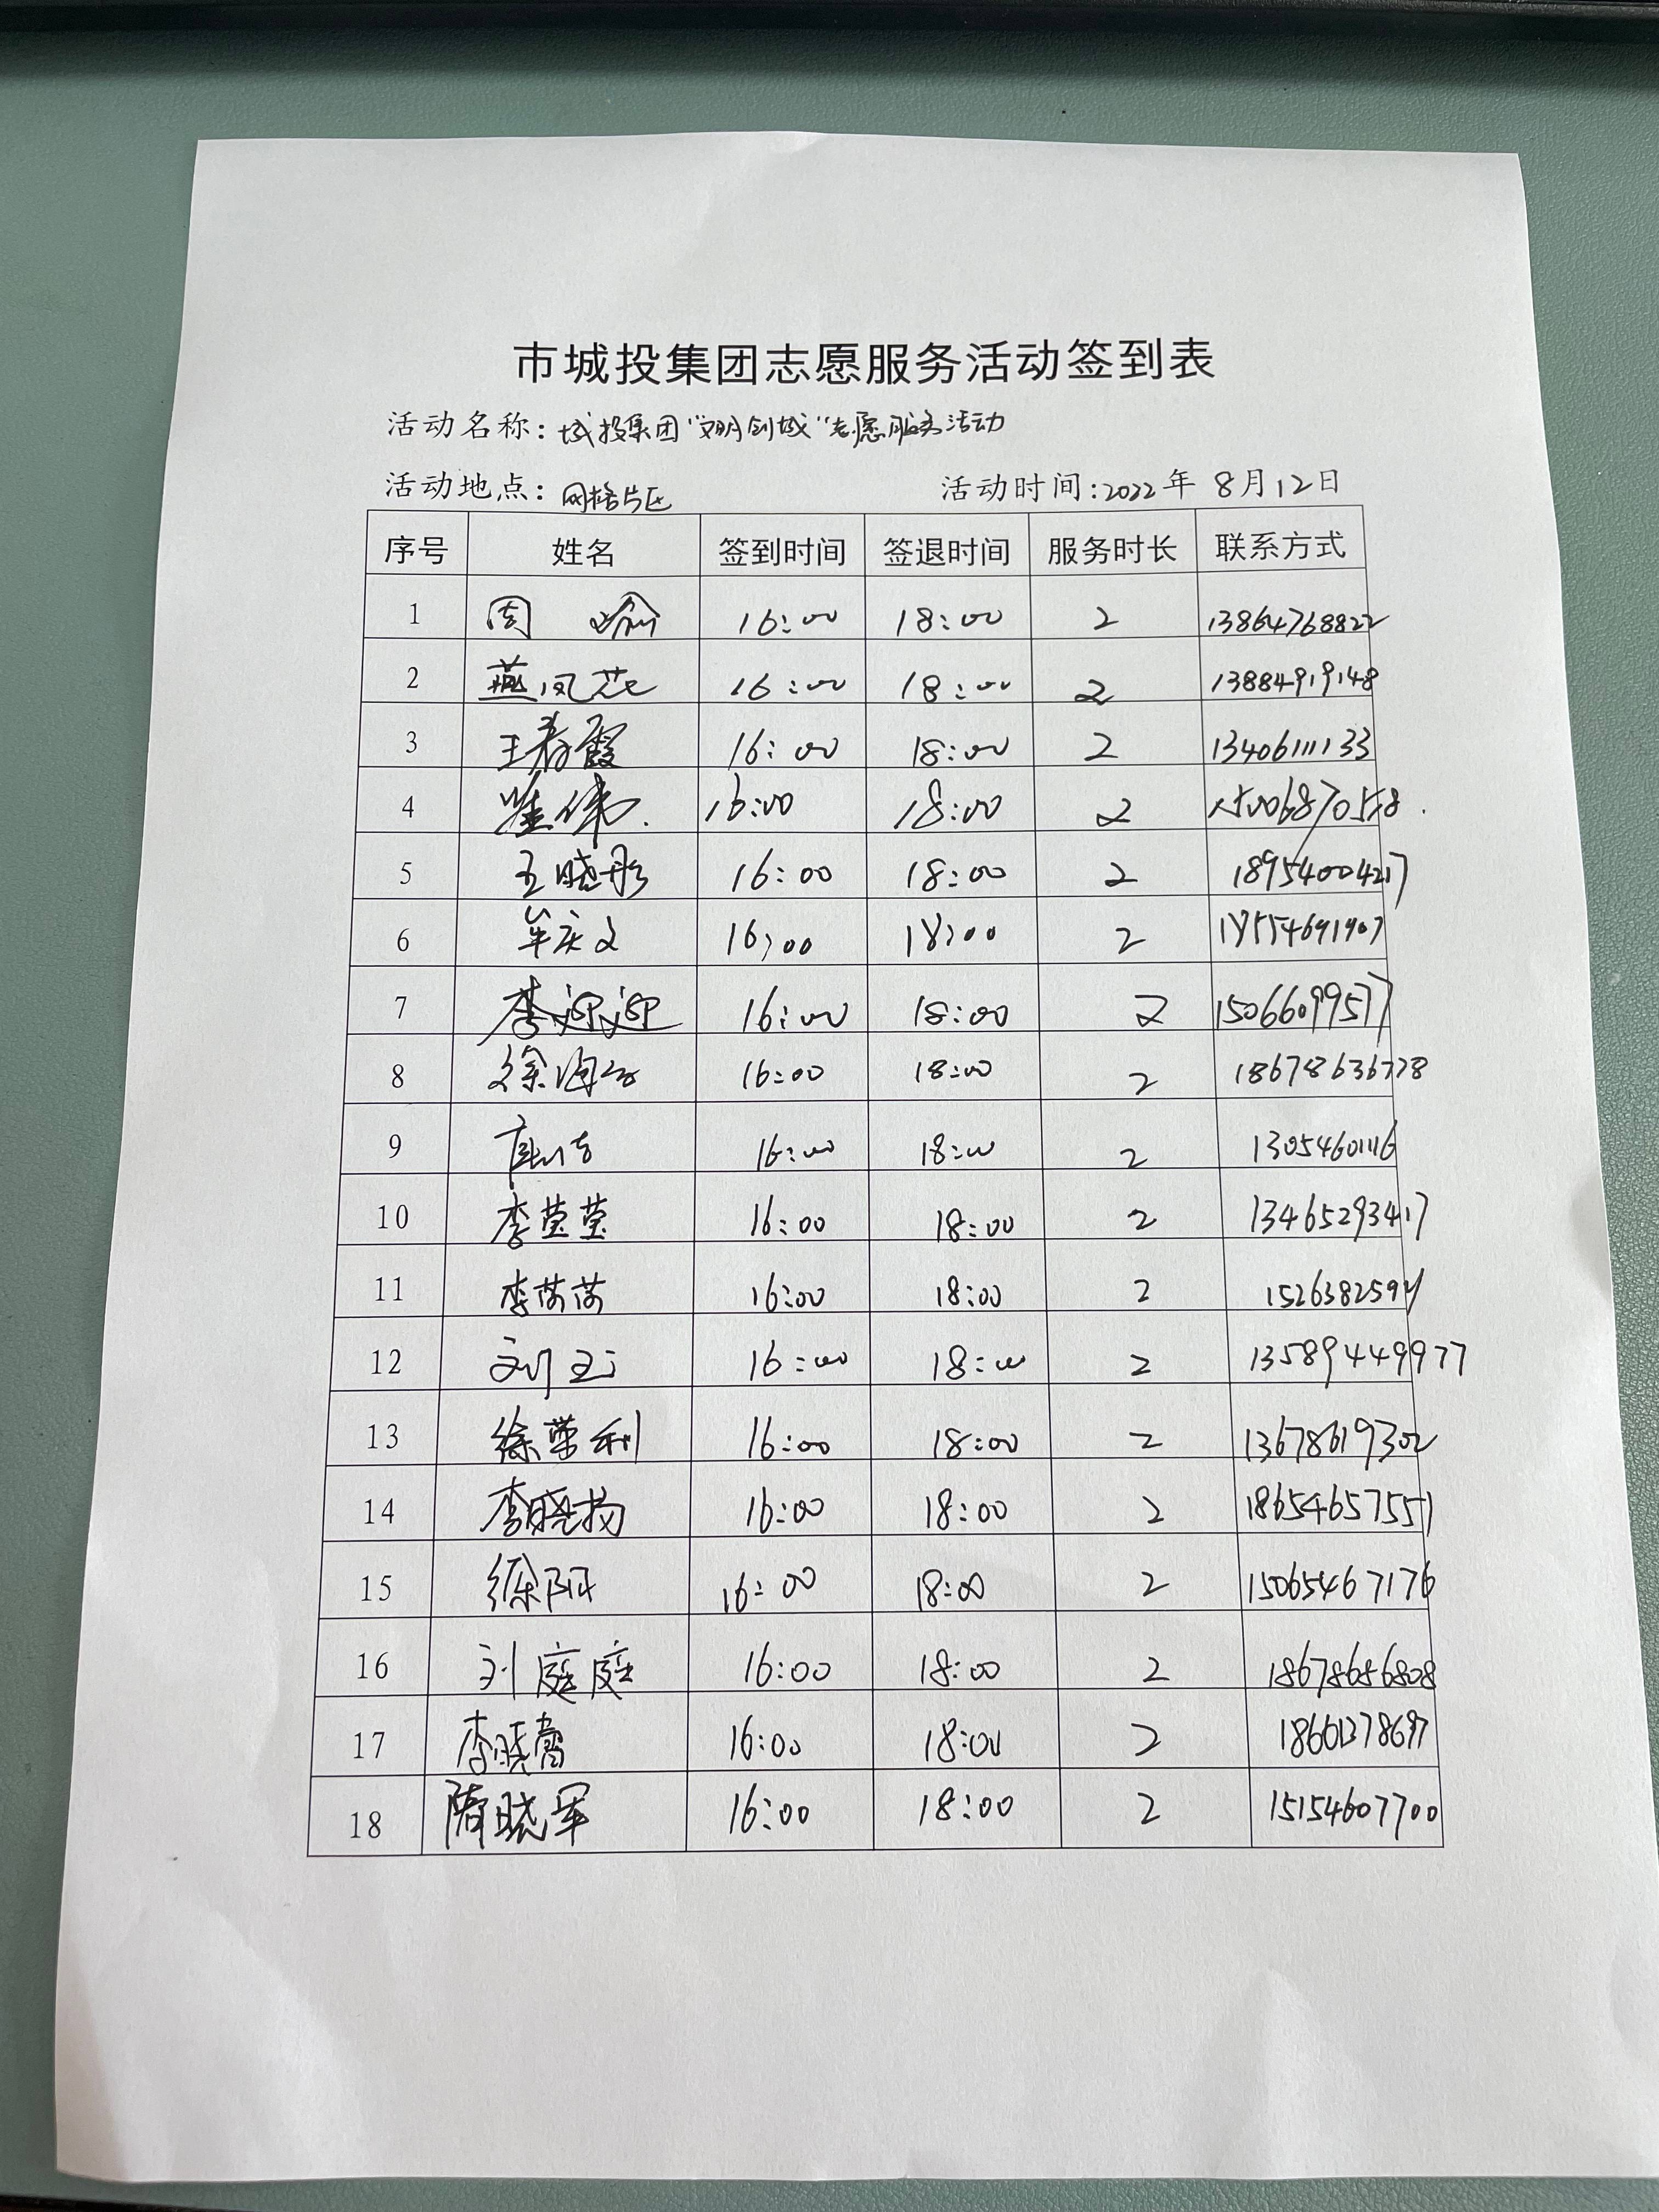 市城投集团志愿服务活动签到表
活动名称：城投集团“文明创城”志愿服务活动
活动地点：网格片区 活动时间：2022年 8月12日
序号 姓名 签到时间 签退时间 服务时长 联系方式
1 周 16:00 18:00 2 13864768822
2 燕凤芝 16:00 18:00 2 13884919148
3 王春霞 16:00 18:00 2 13406111133
4 崔伟 16:00 18:00 2
5 王晓彤 16:00 18:00 2 18954004217
6 牟庆文 16:00 18:00 2
7 李迎迎 16:00 18:00 2 15066099577
8 徐海 16:00 18:00 2 18678636728
9 16:00 18:00 2 13054601116
10 李莹莹 16:00 18:00 2 13465293417
11 李 16:00 18:00 2
12 刘玉 16:00 18:00 2 13589449977
13 徐荣利 16:00 18:00 2 13678619302
14 李晓扬 16:00 18:00 2 18654657551
15 徐阳 16:00 18:00 2 15065467176
16 刘庭庭 16:00 18:00 2 18678686808
17 李晓 16:00 18:00 2 18661378697
18 隋晓军 16:00 18:00 2 15154607700